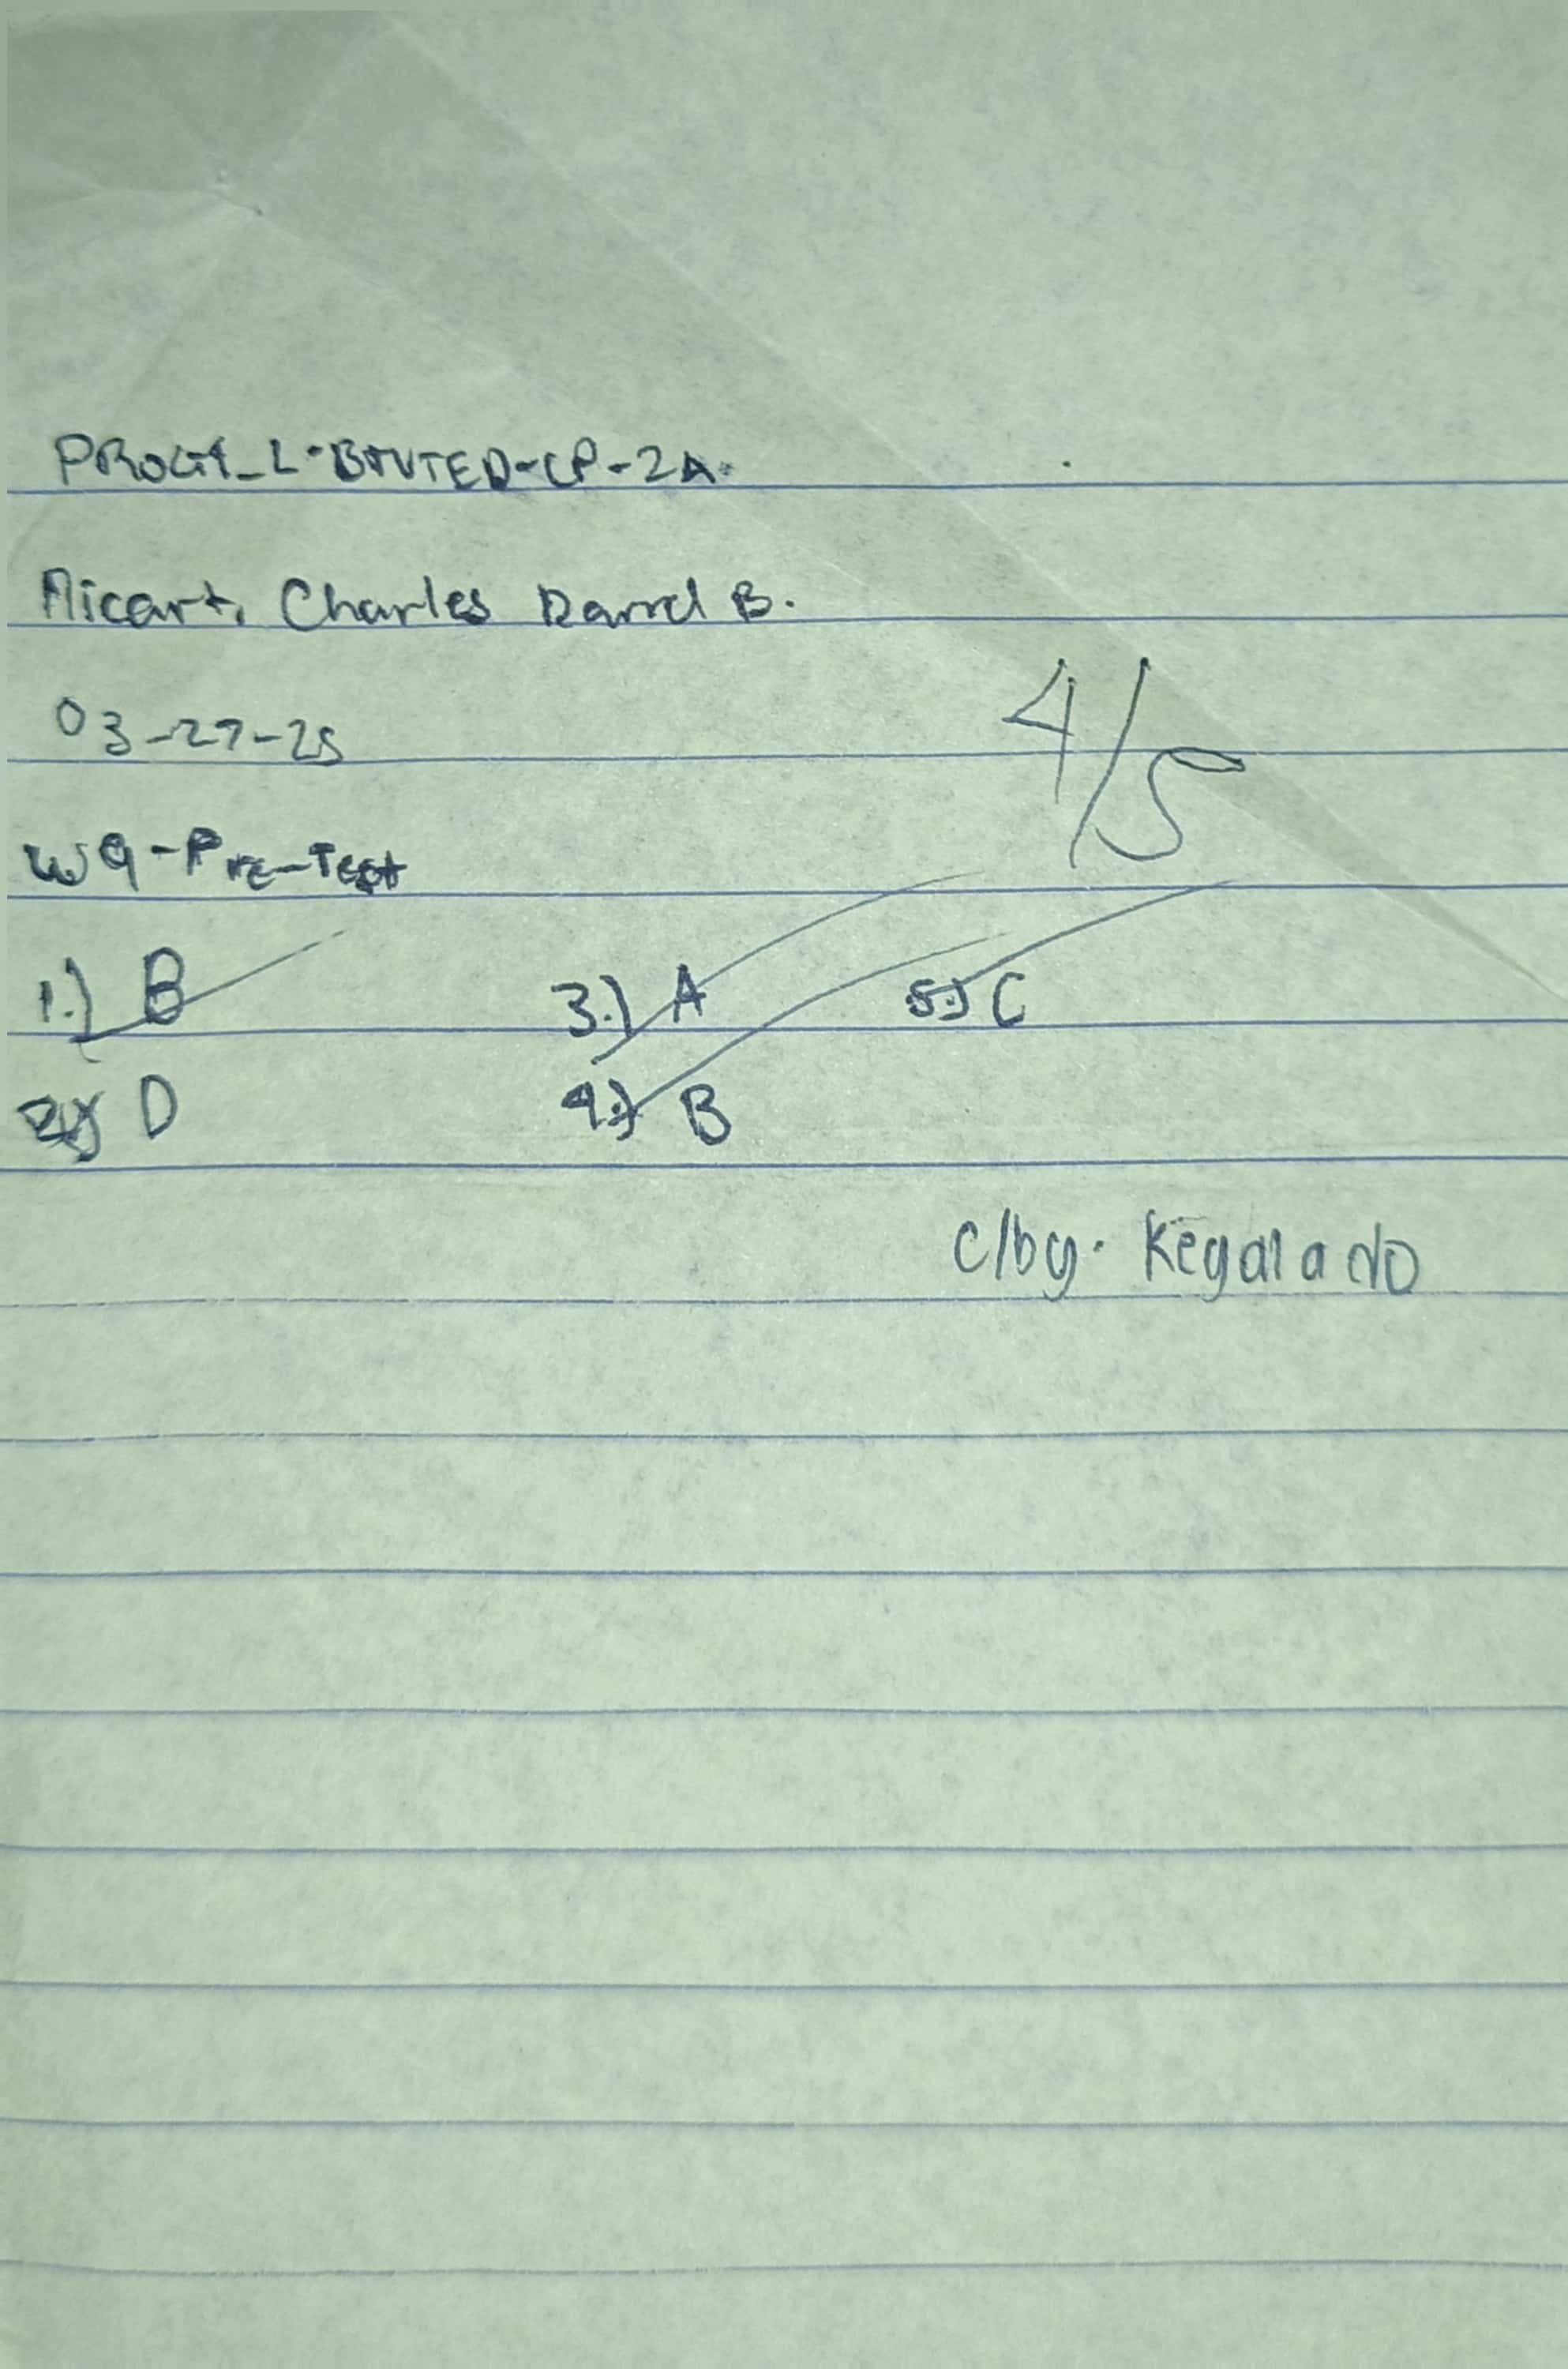 PROG1_L-BTVTED-CP-2A.
Micart, Charles Darrel B.
03-27-25
4/5
W9-Pre-Test
1.) B 3.) A 5.) C
2.) D 4.) B
c/by. Regalado